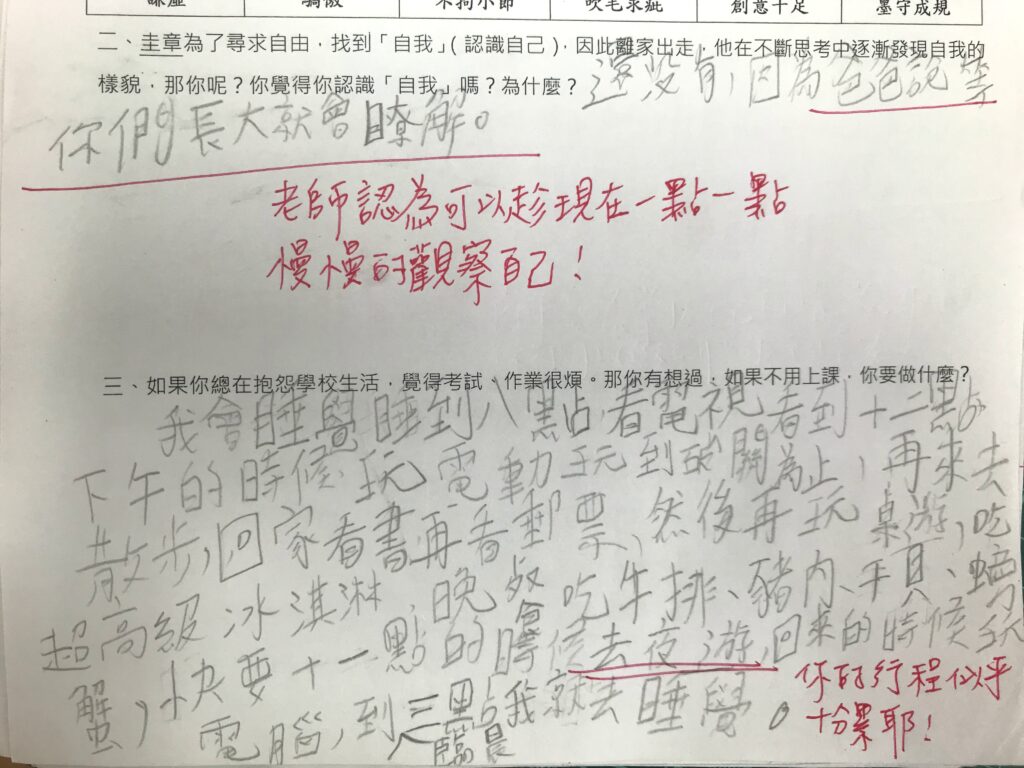 謙虛 驕傲 不拘小節 吹毛求疵 創意十足 墨守成規
二、圭章為了尋求自由,找到「自我」(認識自己),因此離家出走,他在不斷思考中逐漸發現自我的
樣貌,那你呢?你覺得你認識「自我」嗎?為什麼?
還沒有,因為爸爸說等
你們長大就會瞭解。
老師認為可以趁現在一點一點
慢慢的觀察自己!
三、如果你總在抱怨學校生活,覺得考試、作業很煩。那你有想過、如果不用上課,你要做什麼?
我會睡覺睡到八點看電視看到十二點
下午的時候玩電動玩到破關為止,再來去
散步,回家看書再看郵票、然後再玩桌遊,吃
超高級冰淇淋,晚餐吃牛排、豬肉、干貝、螃
蟹,快要十一點的時候會去夜游,回來的時候玩
電腦,到臨晨三點我就去睡覺。
你的行程似乎
十分累耶!